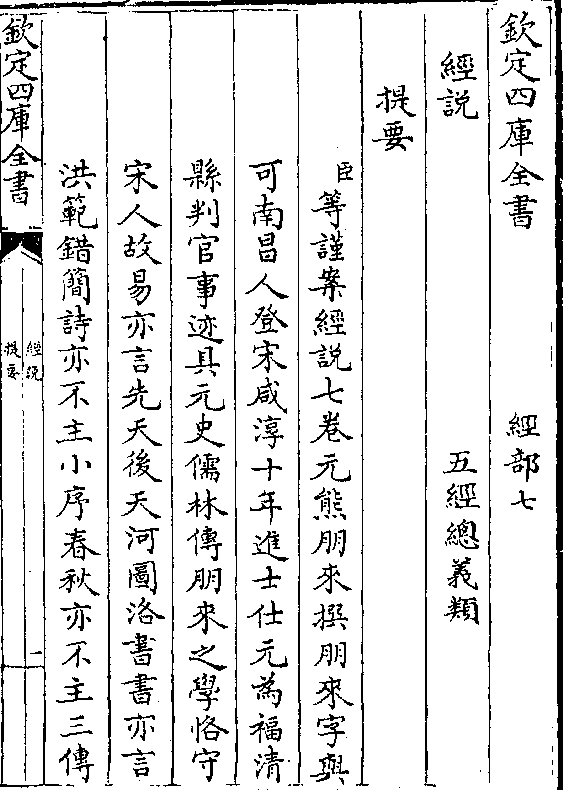 欽定四庫全書　經部七
經說　五經總義類
提要
臣等謹案經說七卷元熊朋來撰朋來字與
可南昌人登宋咸淳十年進士仕元為福清
縣判官事迹具元史儒林傳朋來之學恪守
宋人故易亦言先天後天河圖洛書書亦言
洪範錯簡詩亦不主小序春秋亦不主三傳
欽定四庫全書
經說
提要
一